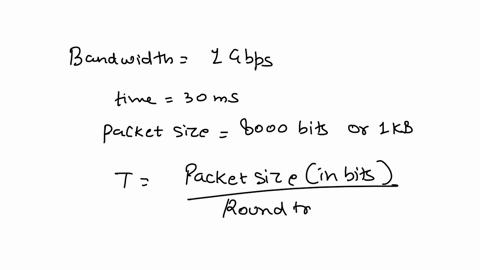 Bandwidth = 1 Gbps
time = 30 ms
Packet size = 8000 bits or 1 KB
T = Packet size (in bits)
Round tr